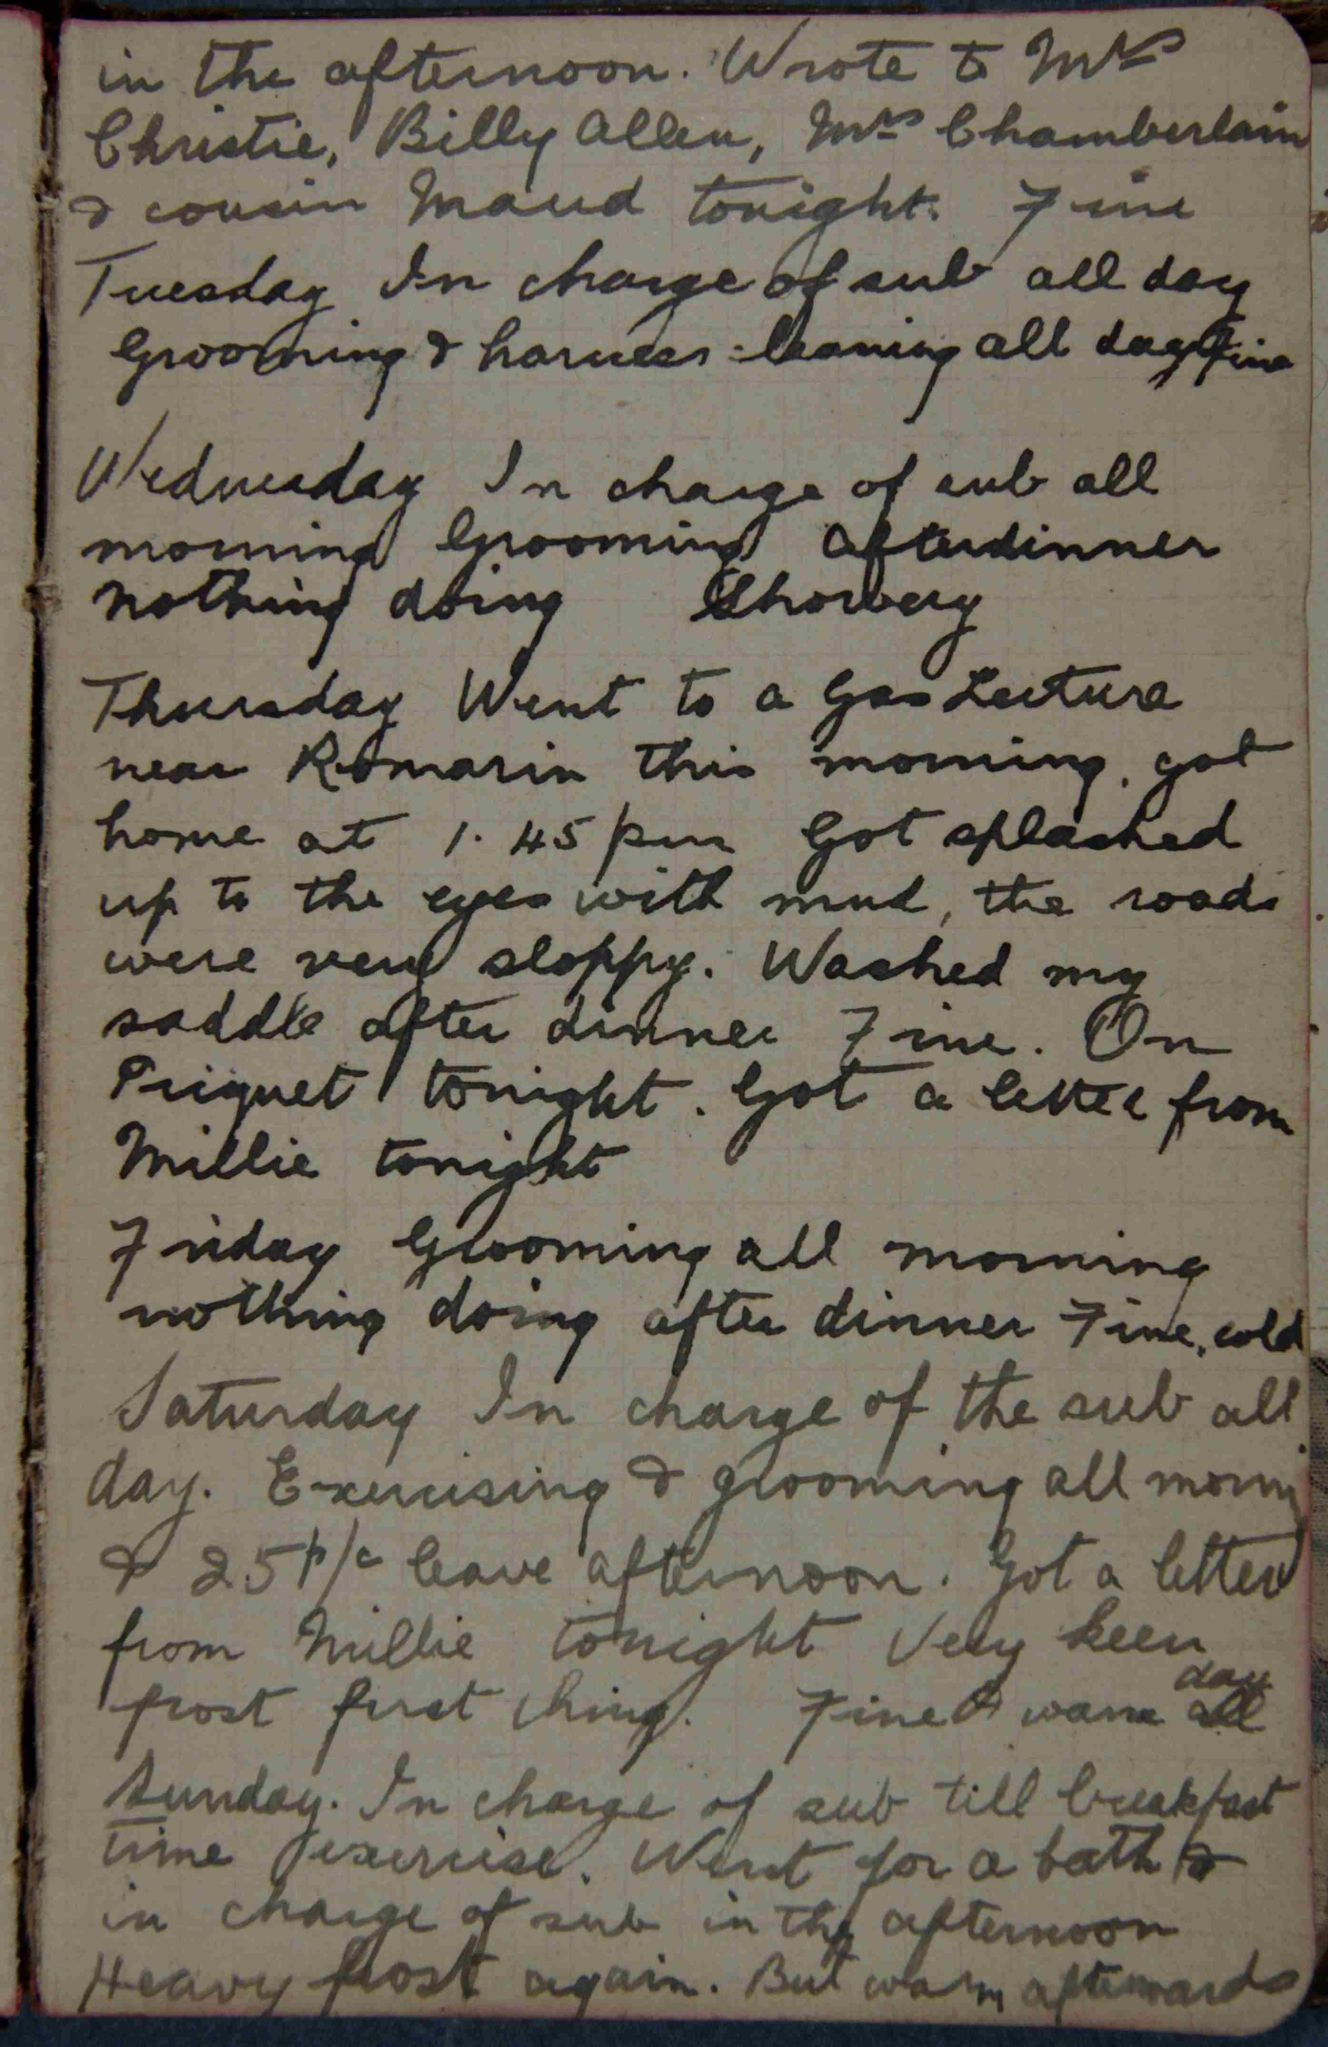 in the afternoon. Wrote to Mrs
Christie, Billy Allen, Mrs Chamberlain
& cousin Maud tonight. Fine
Tuesday In charge of sub all day
Grooming & harness leaning all day Fine
Wednesday In charge of sub all
morning Grooming afterdinner
nothing doing Showery
Thursday Went to a Gas Lecture
near Romarin this morning, got
home at 1.45 pm Got splashed
up to the eyes with mud, the roads
were very sloppy. Washed my
saddle after dinner Fine. On
Priquet tonight. Got a letter from
Millie tonight
Friday Grooming all morning
nothing doing after dinner Fine, cold
Saturday In charge of the sub all
day. Exercising & grooming all morning
& 25 p/c leave afternoon. Got a letter
from Millie tonight Very keen
frost first thing. Fine & warm all day
Sunday. In charge of sub till breakfast
time exercise. Went for a bath &
in charge of sub in the afternoon
Heavy frost again. But warm afterwards